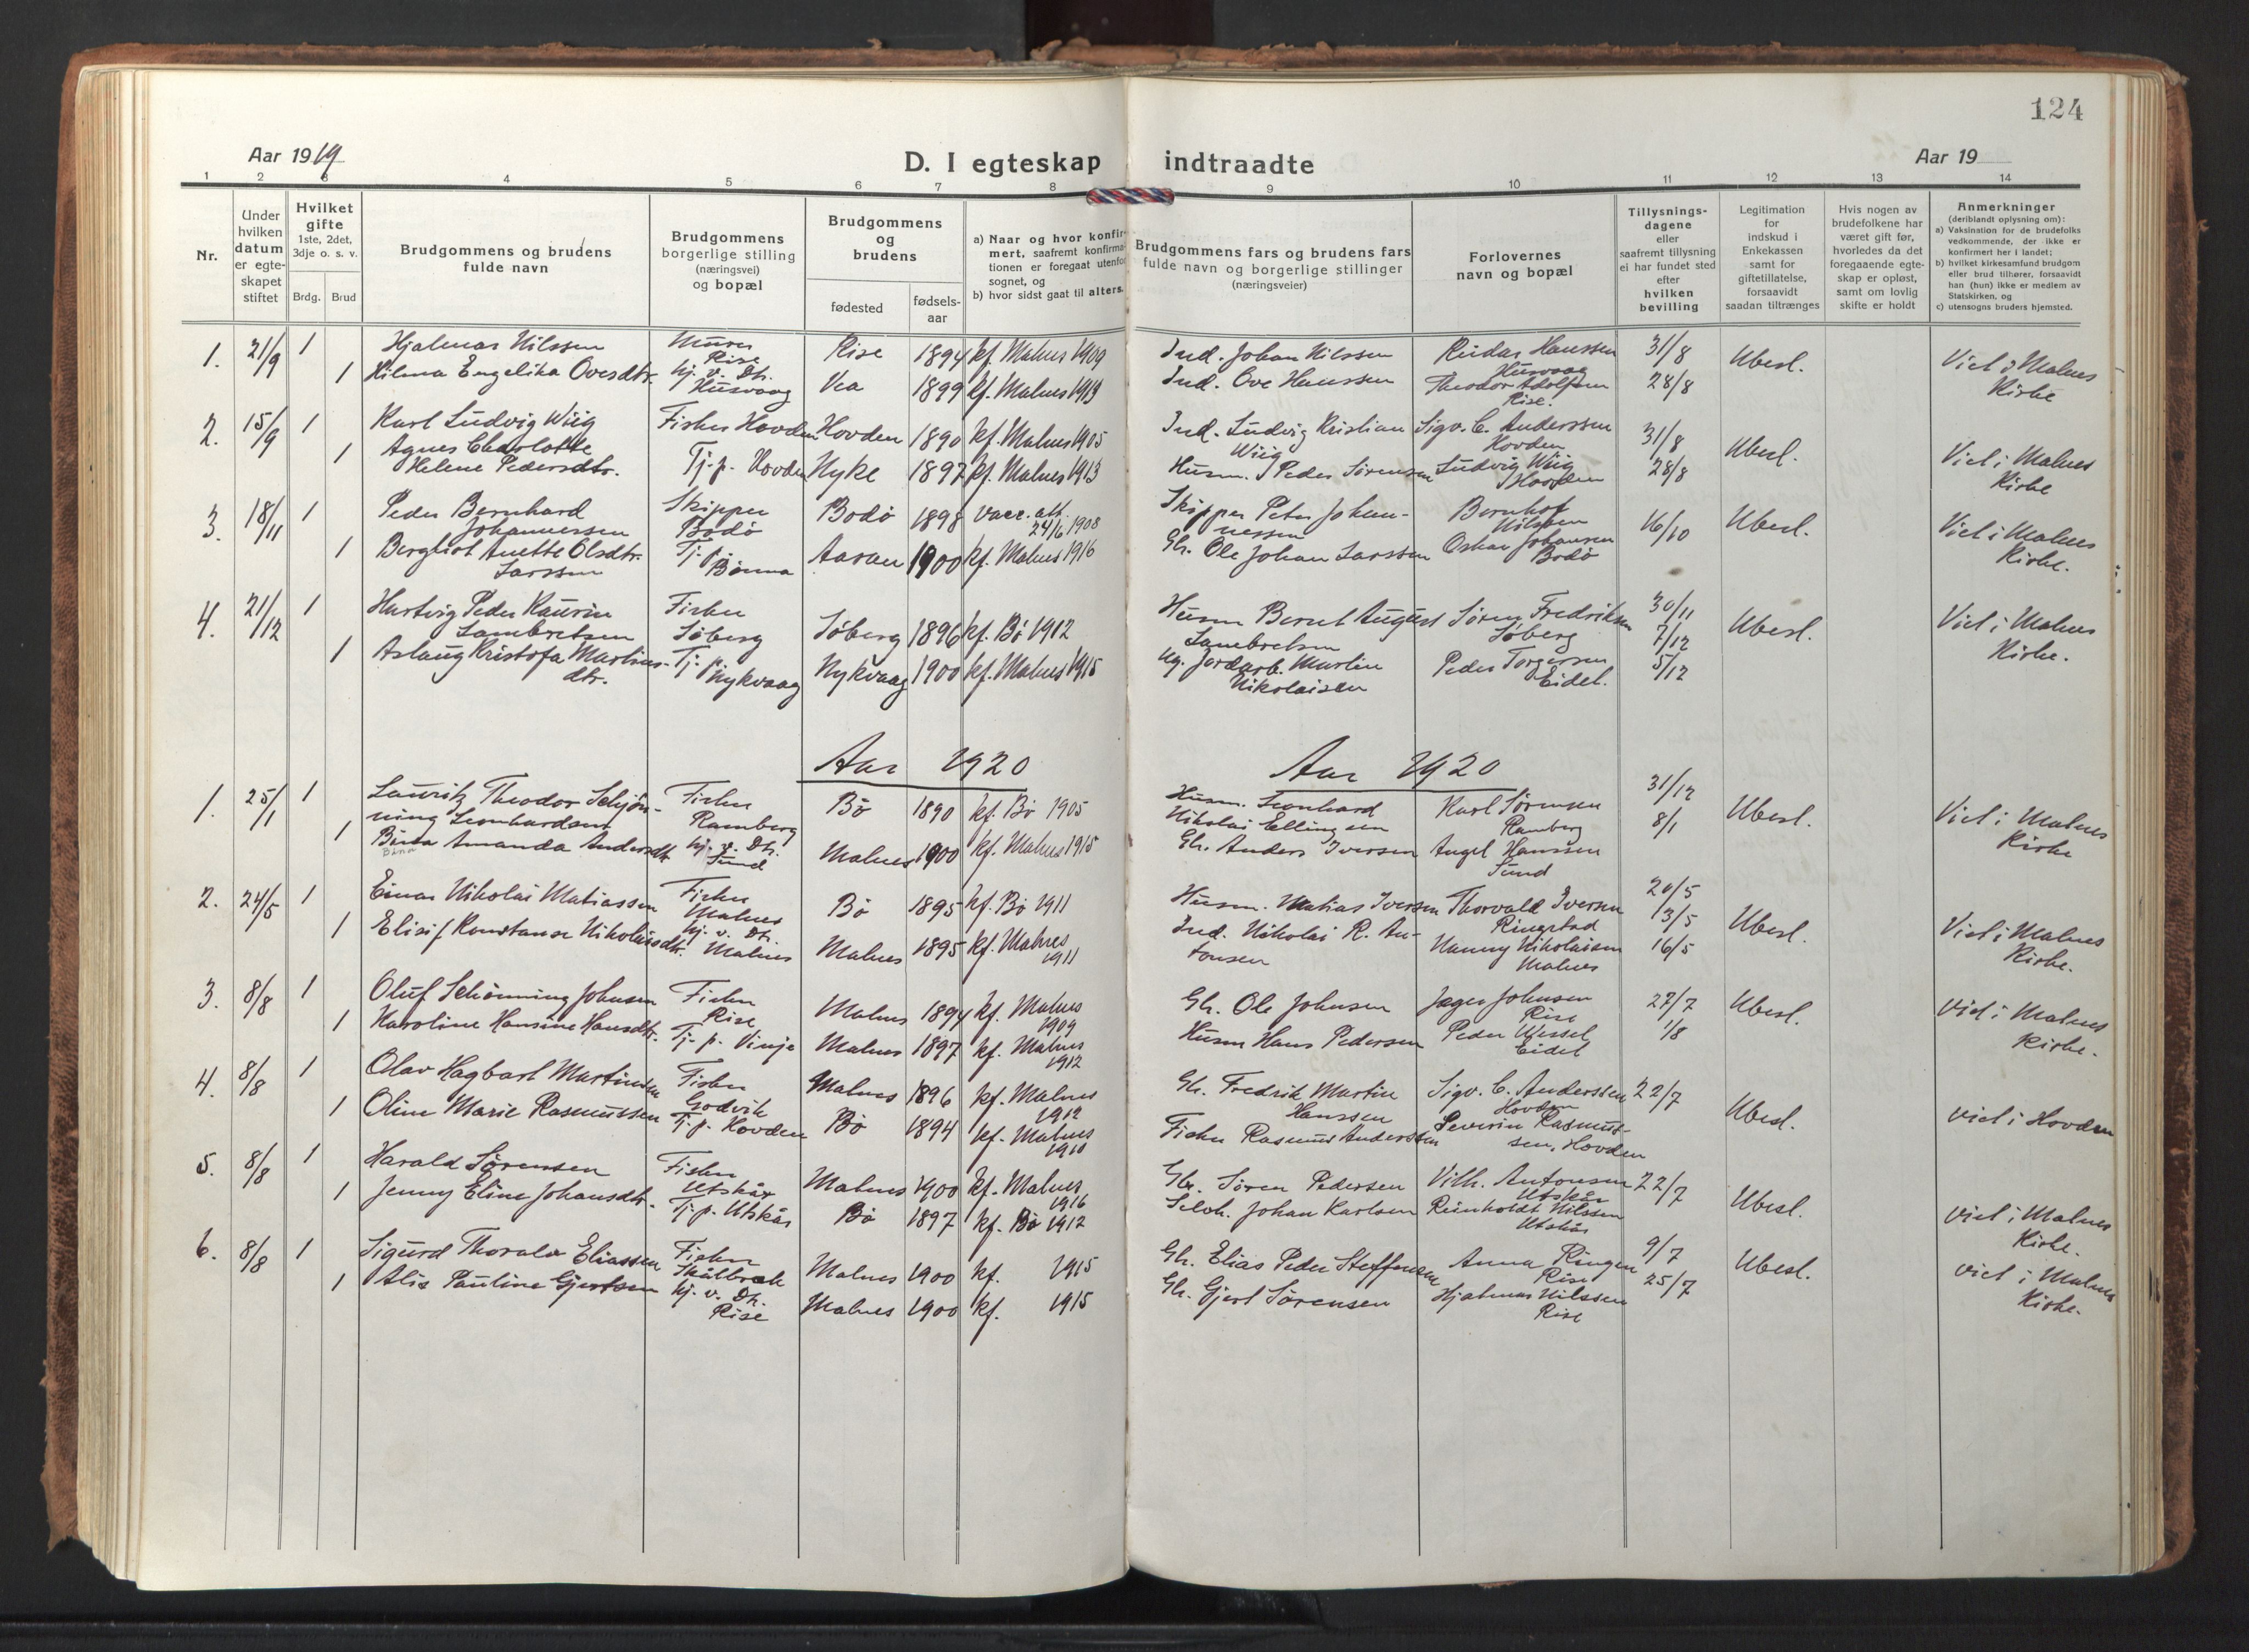 124
Aar 1919
D. I egteskap
indtraadte
Aar 19
1 2 3 4 5 6 7 8 9 10 11 12 13 14
Nr.
Under hvilken datum er egteskapet stiftet
Hvilket gifte
1ste, 2det, 3dje o. s. v.
Brdg. Brud
Brudgommens og brudens fulde navn
Brudgommens borgerlige stilling (næringsvei) og bopæl
Brudgommens og brudens
fødested
fødsels-aar
a) Naar og hvor konfir-
mert, saafremt konfirma-
tionen er foregaat utenfor
sognet, og
b) hvor sidst gaat til alters.
Brudgommens fars og brudens fars
fulde navn og borgerlige stillinger
(næringsveier)
Forlovernes
navn og bopæl
Tillysnings-
dagene
eller
saafremt tillysning
ei har fundet sted
efter
hvilken
bevilling
Legitimation
for
indskud i
Enkekassen
samt for
giftetillatelse,
forsaavidt
saadan tiltrænges
Hvis nogen av
brudefolkene har
været gift før,
hvorledes da det
foregaaende egte-
skap er opløst,
samt om lovlig
skifte er holdt
Anmerkninger
(deriblandt oplysning om):
a) Vaksination for de brudefolks
vedkommende, der ikke er
konfirmert her i landet;
b) hvilket kirkesamfund brudgom
eller brud tilhører, forsaavidt
han (hun) ikke er medlem av
Statskirken, og
c) utensogns bruders hjemsted.
1. 21/9 1 Hjalmar Nilssen Murer Rise Rise 1894 kf. Malnes 1909 Ind. Johan Nilssen Reidar Hanssen Husvaag 31/8 Ubesl. Viet i Malnes Kirke
1 Hilma Engelika Ovesdtr. hj. v. Dtr. Husvaag Vea 1899 kf. Malnes 1914 Ind. Ove Hanssen Theodor Adolfsen Rise. 28/8
2. 15/9 1 Karl Ludvig Wiig Fisker Hovden Hovden 1890 kf. Malnes 1905 Ind. Ludvig Kristian Wiig Sigv. C. Anderssen Hovden 31/8 Ubesl. Viet i Malnes Kirke
1 Agnes Charlotte Helene Pedersdtr. Tj. p. Hovden Nyke 1897 kf. Malnes 1913 Husm. Peder Sørensen Ludvig Wiig Hovden 28/8
3. 18/11 1 Peder Bernhard Johannessen Skipper Bodö Bodö 1898 vacc. att. 24/6 1908 Skipper Peter Johannessen Bernhof Nilssen 16/10 Ubesl. Viet i Malnes Kirke.
1 Bergliot Anette Olsdtr. Larssen Tj. p. Bönna Aasan 1900 kf. Malnes 1916 Gbr. Ole Johan Larssen Oskar Johansen Bodö
4. 21/12 1 Hartvig Peder Kaurin Lambretsen Fisker Söberg Söberg 1896 kf. Bö 1912 Husm Bernt August Lambretsen Sören Fredriksen Söberg 30/11 7/12 Ubesl. Viet i Malnes Kirke.
1 Aslaug Kristofa Martinsdtr. Tj. p. Nykvaag Nykvaag 1900 kf. Malnes 1915 Ug. Jordarb. Martin Nikolaisen Peder Torgersen Eidet. 5/12
Aar 1920 Aar 1920
1. 25/1 1 Lauritz Theodor Schjönning Leonhardsen Fisker Ramberg Bö 1890 kf. Bö 1905 Husm. Leonhard Nikolai Ellingsen Karl Sörensen Ramberg 31/12 Ubesl. Viet i Malnes Kirke
1 Bina Amanda Andersdtr. hj. v. Dtr. Sund Malnes 1900 kf. Malnes 1915 Gbr. Anders Iversen Angel Hanssen Sund 8/1
2. 24/5 1 Einar Nikolai Matiassen Fisker Malnes Bö 1895 kf. Bö 1911 Husm. Matias Iversen Thorvald Iversen Ringstad 20/5 13/5 Ubesl. Viet i Malnes Kirke.
1 Elisif Konstanse Nikolaisdtr. hj. v. Dtr. Malnes Malnes 1895 kf. Malnes 1911 Ind. Nikolai R. Antonsen Nanny Nikolaisen Malnes 16/5
3. 8/8 1 Oluf Schönning Johnsen Fisker Rise Malnes 1894 kf. Malnes 1909 Gbr. Ole Johnsen Jager Johnsen Rise 27/7 Ubesl. Viet i Malnes Kirke.
1 Karoline Hansine Hansdtr. Tj. p. Vinje Malnes 1897 kf. Malnes 1912 Husm Hans Pedersen Peder Wessel Eidet 1/8
4. 8/8 1 Olav Hagbart Martinsen Fisker Godvik Malnes 1896 kf. Malnes 1912 Gbr. Fredrik Martin Hanssen Sigv. C. Anderssen Hovden 22/7 Ubesl. viet i Hovden
1 Oline Marie Rasmussen Tj. p. Hovden Bö 1894 kf. Malnes 1910 Fisker Rasmus Anderssen Severin Rasmussen, Hovden
5. 8/8 1 Harald Sörensen Fisker Utskår Malnes 1900 kf. Malnes 1916 Gbr. Sören Pedersen Vilh. Antonsen Utskår 22/7 Ubesl. viet i Malnes Kirke.
1 Jenny Eline Johansdtr. Tj. p. Utskår Bö 1897 kf. Bö 1912 Selvh. Johan Karlsen Reinholdt Nilssen Utskår
6. 8/8 1 Sigurd Thoralv Eliassen Fisker Skålbrek Malnes 1900 kf. 1915 Gbr. Elias Peder Steffensen Anna Ringen Rise 9/7 Ubesl. viet i Malnes Kirke.
1 Alis Pauline Gjertsen hj. v. Dtr. Rise Malnes 1900 kf. 1915 Gbr. Gjert Sörensen Hjalmar Nilssen Rise 25/7